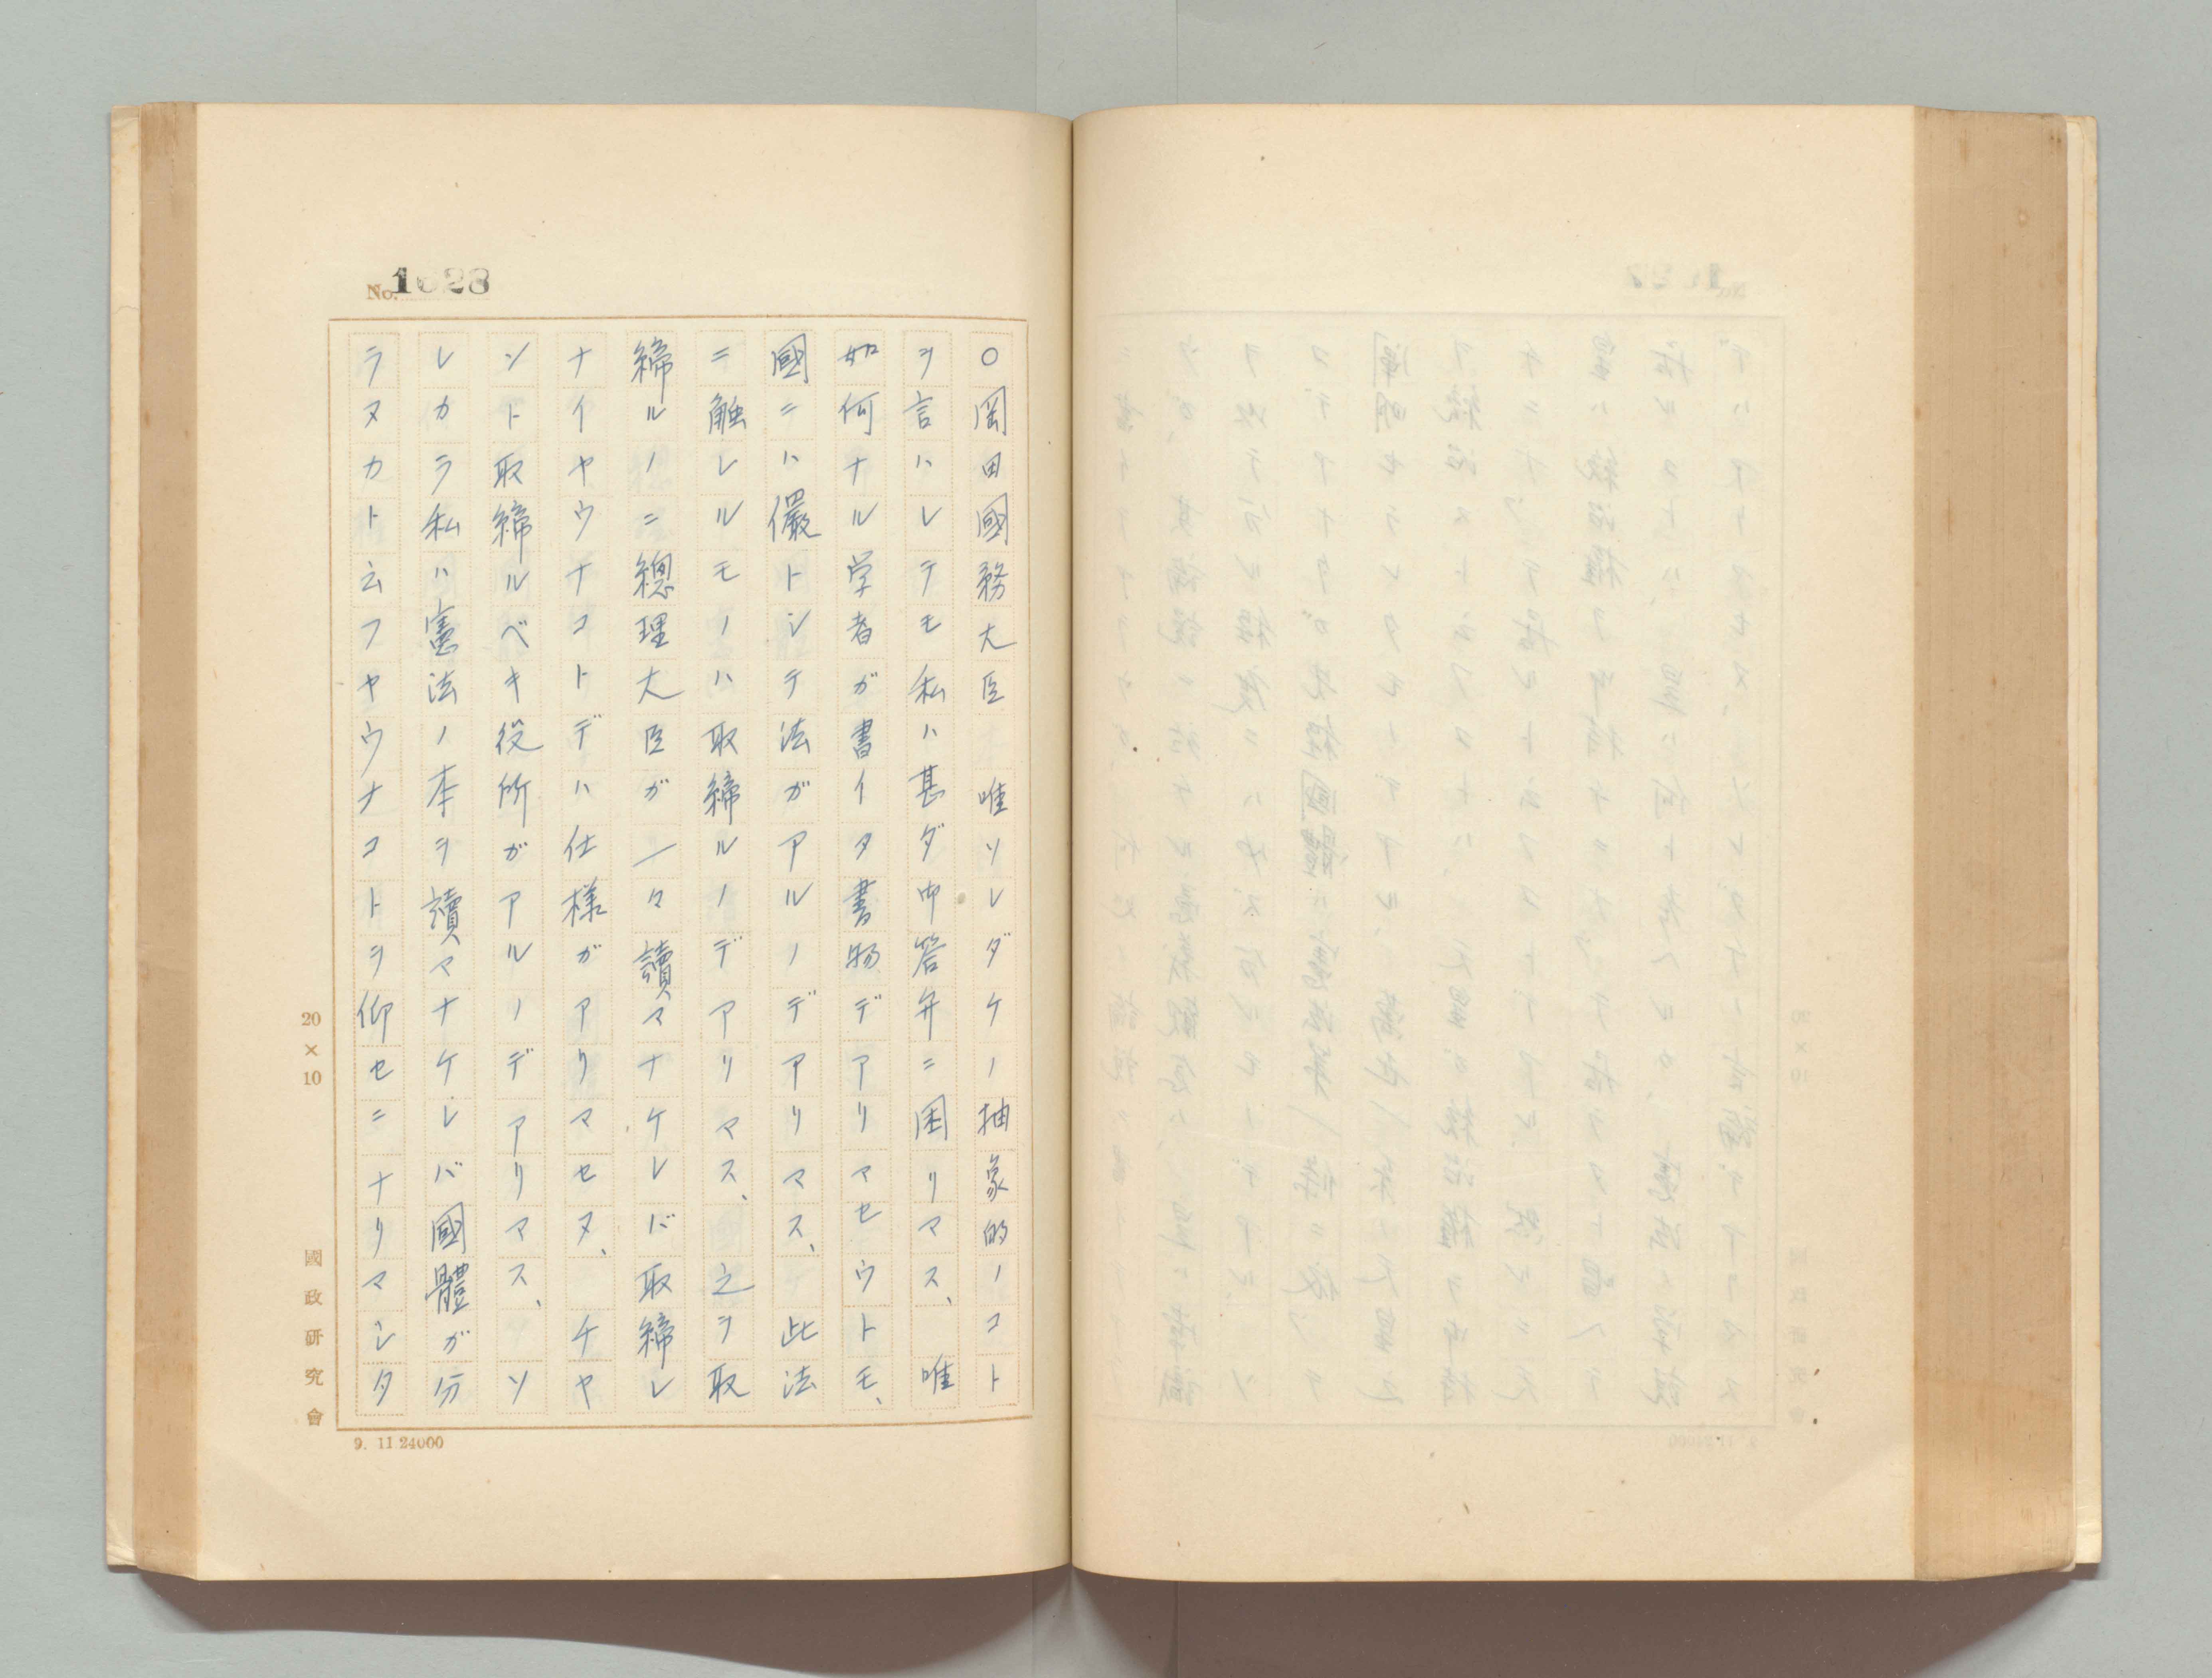 No. 1628
○岡田國務大臣　唯ソレダケノ抽象的ノコト
ヲ言ハレテモ私ハ甚ダ御答弁ニ困リマス、唯
如何ナル学者ガ書イタ書物デアリマセウトモ、
國ニハ儼トシテ法ガアルノデアリマス、此法
ニ触レルモノハ取締ルノデアリマス、之ヲ取
締ルノニ總理大臣ガ一々讀マナケレバ取締レ
ナイヤウナコトデハ仕様ガアリマセヌ、チヤ
ント取締ルベキ役所ガアルノデアリマス、ソ
レカラ私ハ憲法ノ本ヲ讀マナケレバ國體ガ分
ラヌカト云フヤウナコトヲ仰セニナリマシタ
20×10
國政研究會
9. 11.24000